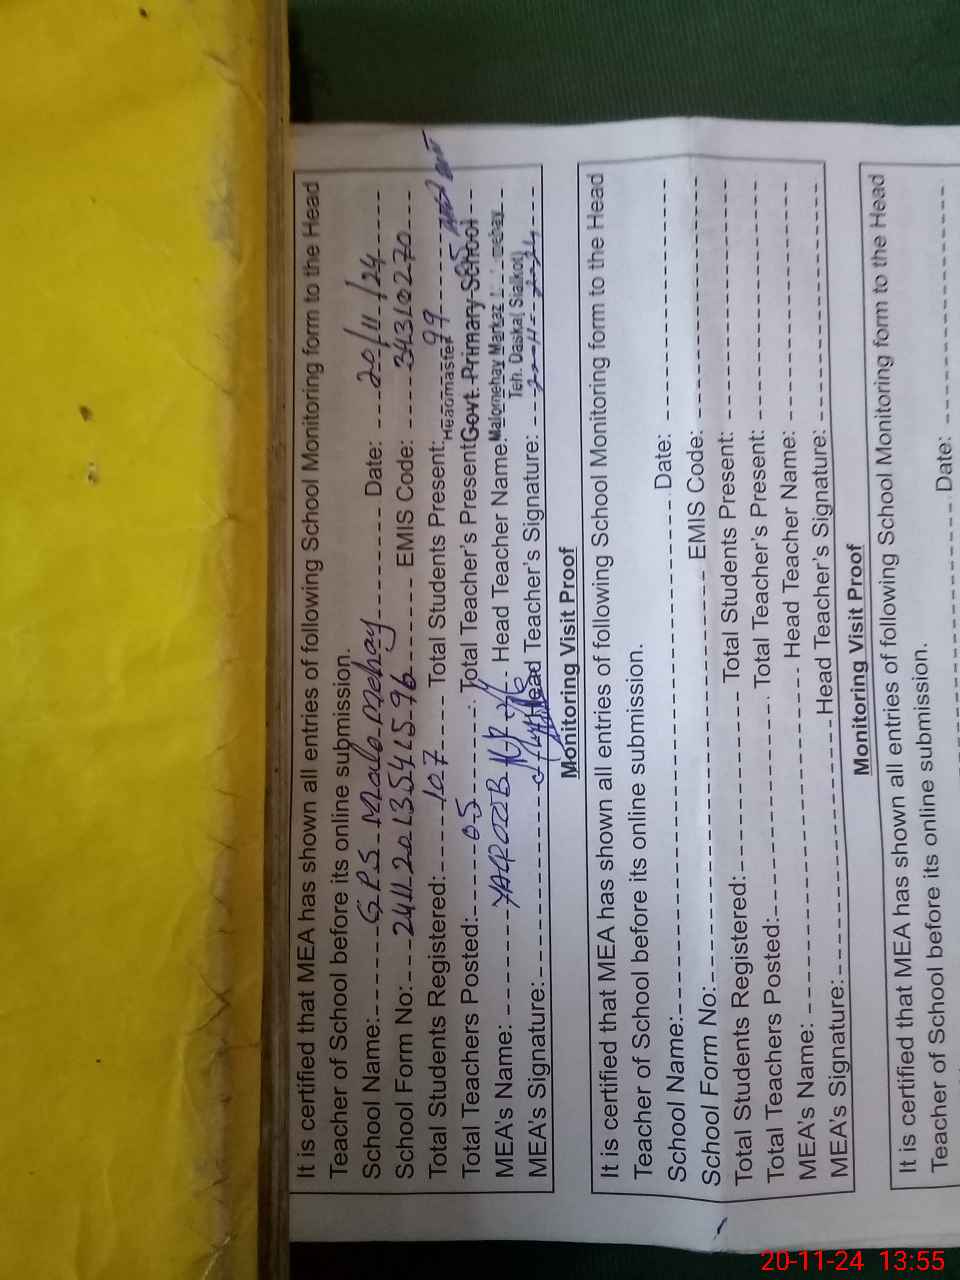 It is certified that MEA has shown all entries of following School Monitoring form to the Head
Teacher of School before its online submission.
School Name: GPS Malo Mehay Date: 20/11/24
School Form No: EMIS Code: 34310270
Total Students Registered: 107 Total Students Present: 99
Headmaster
Total Teachers Posted: 05 Total Teacher's Present: 05
Govt. Primary School
MEA's Name: YAQOOB Head Teacher Name:
Malomehay Markaz
Teh. Daska( Sialkot)
MEA's Signature: Head Teacher's Signature:
Monitoring Visit Proof
It is certified that MEA has shown all entries of following School Monitoring form to the Head
Teacher of School before its online submission.
School Name: Date:
School Form No: EMIS Code:
Total Students Registered: Total Students Present:
Total Teachers Posted: Total Teacher's Present:
MEA's Name: Head Teacher Name:
MEA's Signature: Head Teacher's Signature:
Monitoring Visit Proof
It is certified that MEA has shown all entries of following School Monitoring form to the Head
Teacher of School before its online submission.
Date:
20-11-24 13:55